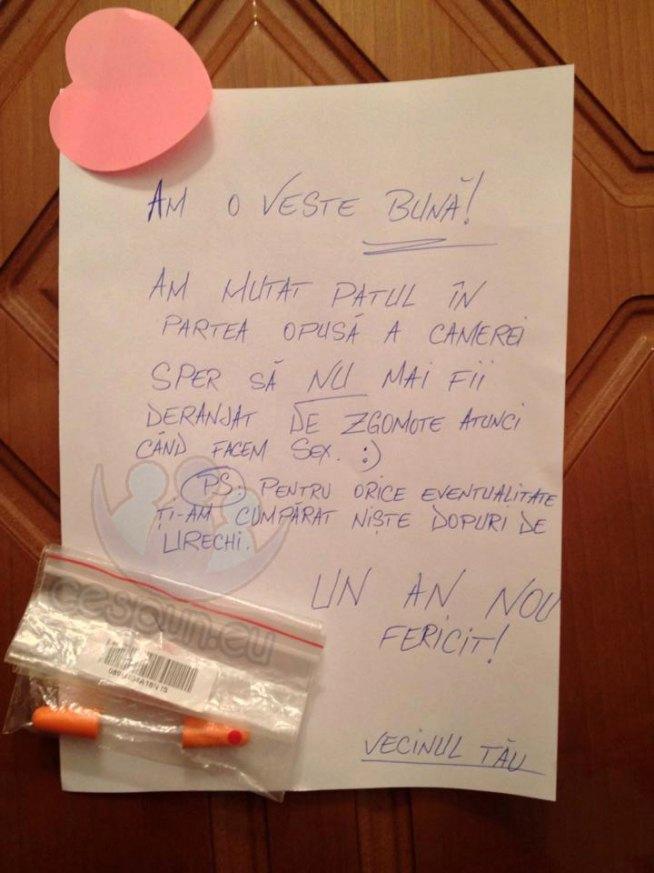 AM O VESTE BUNĂ!
AM MUTAT PATUL ÎN
PARTEA OPUSĂ A CAMEREI
SPER SĂ NU MAI FII
DERANJAT DE ZGOMOTE ATUNCI
CÂND FACEM SEX. :)
PS: PENTRU ORICE EVENTUALITATE
ȚI-AM CUMPĂRAT NIȘTE DOPURI DE
URECHI.
cespun.eu
UN AN NOU
FERICIT!
VECINUL TĂU